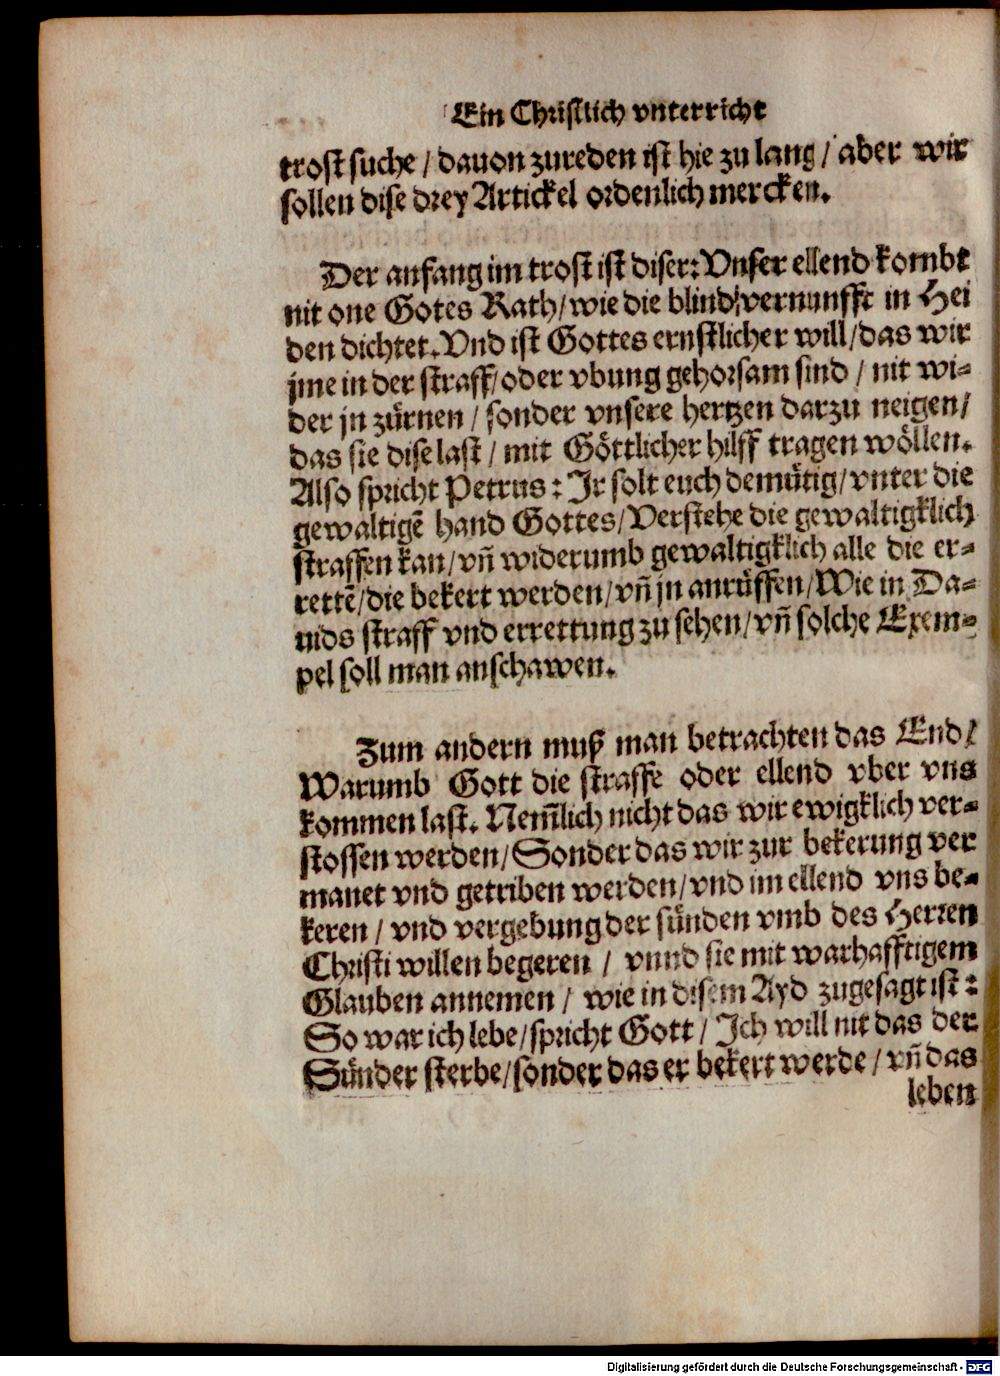 Ein Christlich vnterricht
trost suche / dauon zureden ist hie zu lang / aber wir
sollen dise drey Artickel ordenlich mercken.
Der anfang im trost ist diser: Vnser ellend kombt
nit one Gotes Rath / wie die blind vernunfft in Hei
den dichtet. Vnd ist Gottes ernstlicher will / das wir
jme in der straff / oder vbung gehorsam sind / nit wi-
der jn zürnen / sonder vnsere hertzen darzu neigen /
das sie dise last / mit Göttlicher hilff tragen wöllen.
Also spricht Petrus: Jr solt euch demütig / vnter die
gewaltigẽ hand Gottes / Verstehe die gewaltigklich
straffen kan / vñ widerumb gewaltigklich alle die er-
rettẽ / die bekert werden / vñ jn anrüffen / Wie in Da-
uids straff vnd errettung zu sehen / vñ solche Exem-
pel soll man anschawen.
Zum andern muß man betrachten das End /
Warumb Gott die straffe oder ellend vber vns
kommen last. Nem̃lich nicht das wir ewigklich ver-
stossen werden / Sonder das wir zur bekerung ver
manet vnd getriben werden / vnd im ellend vns be-
keren / vnd vergebung der sünden vmb des Herren
Christi willen begeren / vnnd sie mit warhafftigem
Glauben annemen / wie in disem Ayd zugesagt ist:
So war ich lebe / spricht Gott / Ich will nit das der
Sünder sterbe / sonder das er bekert werde / vñ das
leben
Digitalisierung gefördert durch die Deutsche Forschungsgemeinschaft - DFG